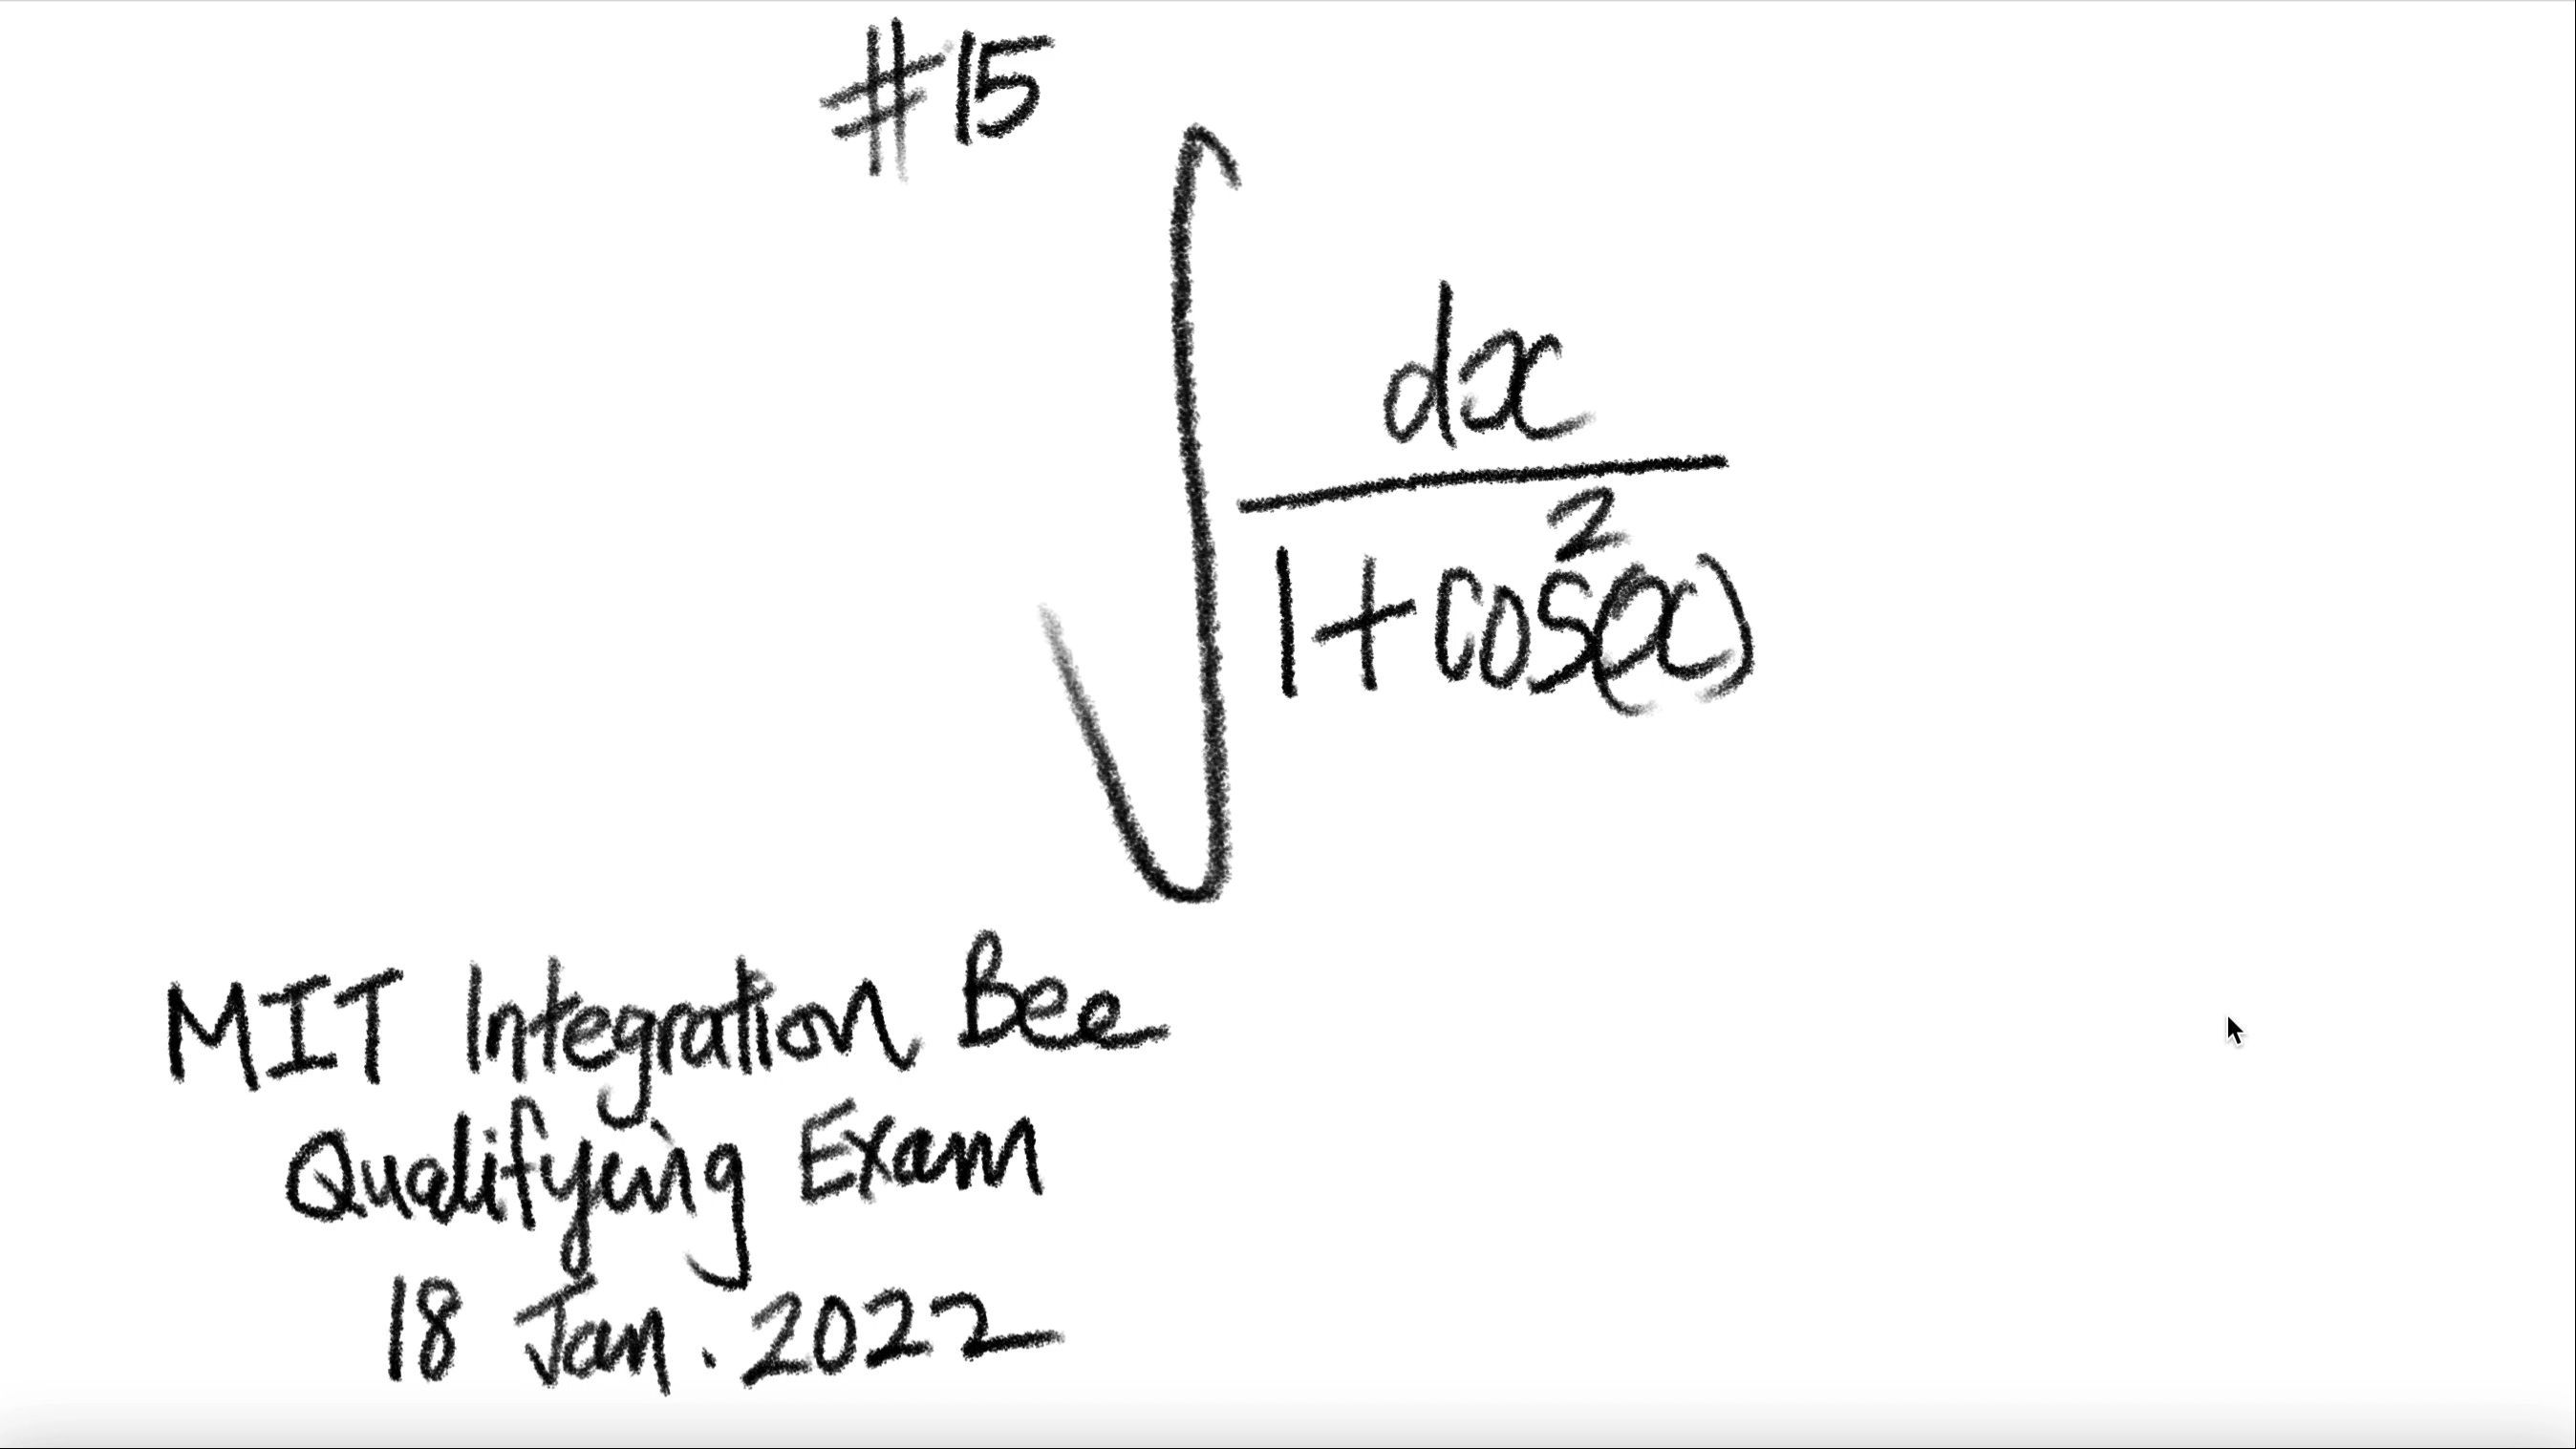 #15
∫ dx
1+cos²(x)
MIT Integration Bee
Qualifying Exam
18 Jan. 2022